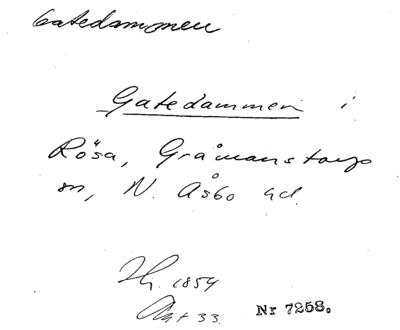 Gatedammen
Gatedammen i
Rösa, Gråmanstorps
sn, N. Åsbo hd.
Hy. 1854
Akt 33.
Nr 7258.